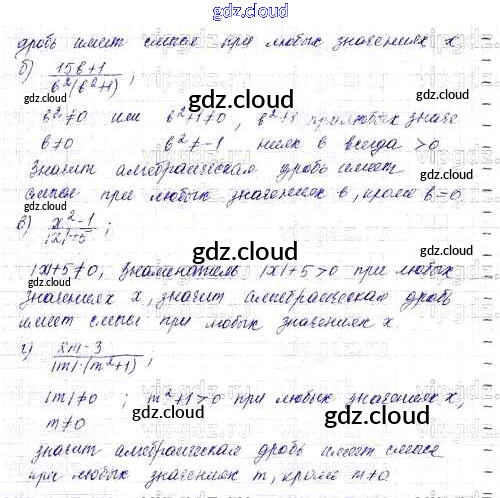 gdz.cloud
дробь имеет смысл при любых значениях x
б) (15b+1)/(b²(b²+1));
gdz.cloud
b²≠0 или b²+1≠0, b²+1 при любых значе
b≠0 b²≠-1 ниях b всегда >0
Значит алгебраическая дробь имеет
смысл при любых значениях b, кроме b=0
в) (x²-1)/(|x|+5);
gdz.cloud
|x|+5≠0, знаменатель |x|+5>0 при любых
значениях x, значит алгебраическая дробь
имеет смысл при любых значениях x.
г) (2m-3)/(|m|·(m²+1));
gdz.cloud
|m|≠0; m²+1>0 при любых значениях x,
m≠0
значит алгебраическая дробь имеет смысл
при любых значениях m, кроме m≠0.
gdz.cloud